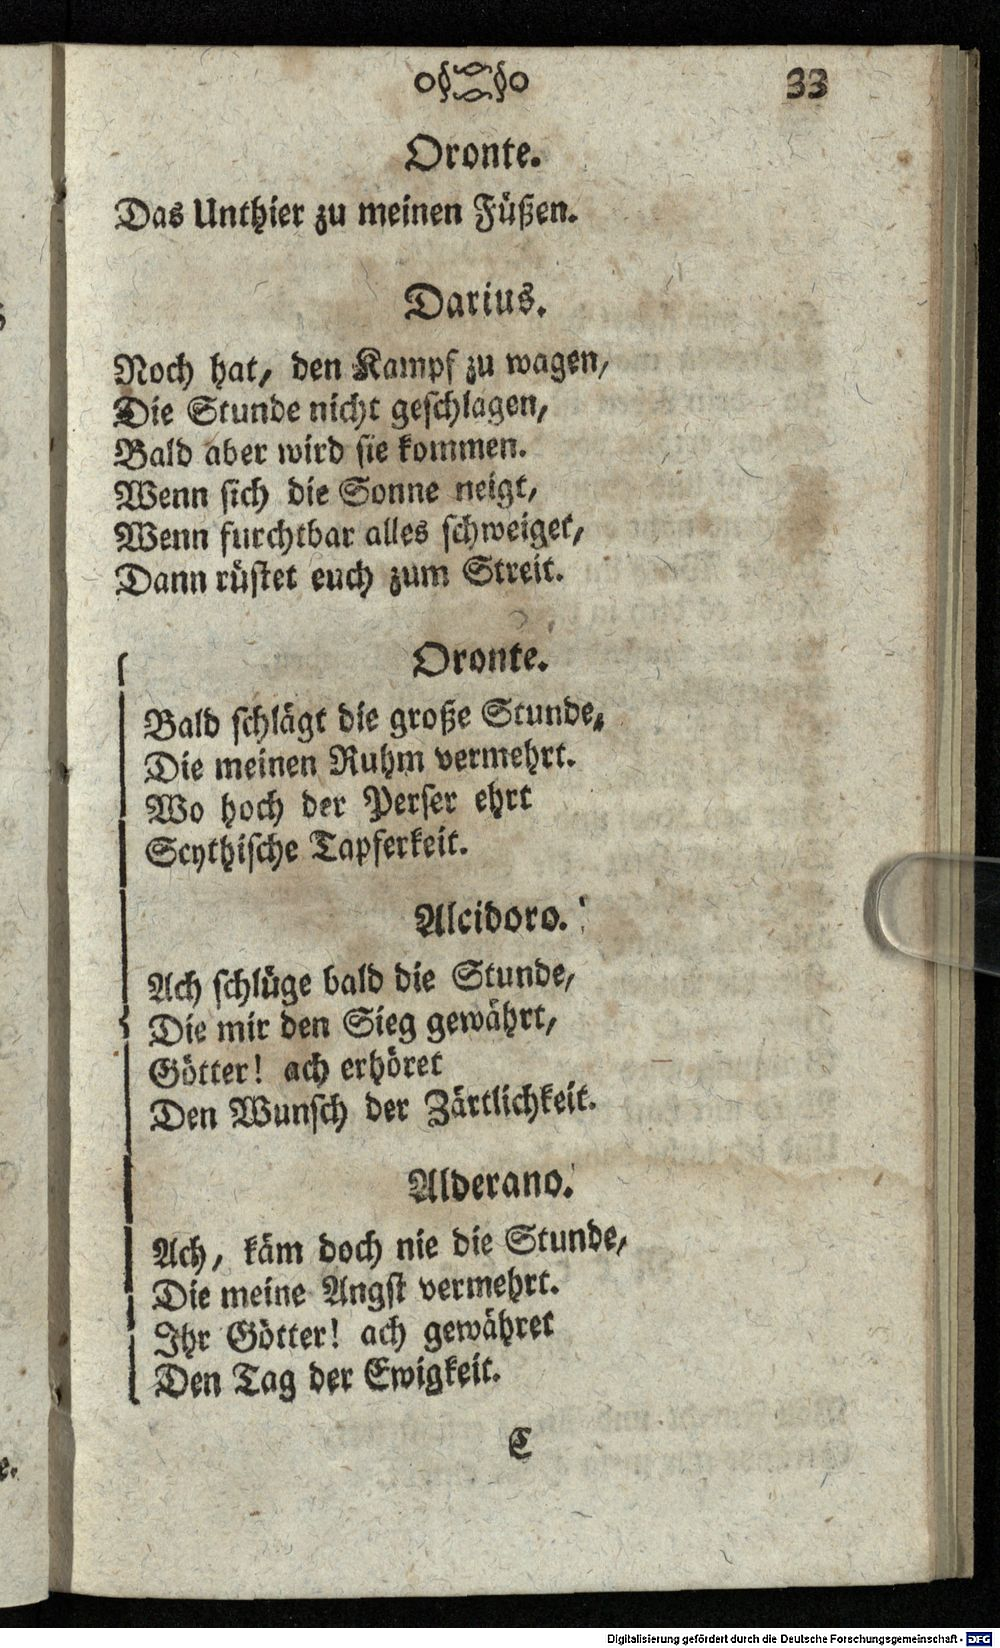 33
Oronte.
Das Unthier zu meinen Füßen.
Darius.
Noch hat, den Kampf zu wagen,
Die Stunde nicht geschlagen,
Bald aber wird sie kommen.
Wenn sich die Sonne neigt,
Wenn furchtbar alles schweiget,
Dann rüstet euch zum Streit.
Oronte.
Bald schlägt die große Stunde,
Die meinen Ruhm vermehrt.
Wo hoch der Perser ehrt
Scythische Tapferkeit.
Alcidoro.
Ach schlüge bald die Stunde,
Die mir den Sieg gewährt,
Götter! ach erhöret
Den Wunsch der Zärtlichkeit.
Alderano.
Ach, käm doch nie die Stunde,
Die meine Angst vermehrt.
Ihr Götter! ach gewähret
Den Tag der Ewigkeit.
C
e.
Digitalisierung gefördert durch die Deutsche Forschungsgemeinschaft - DFG